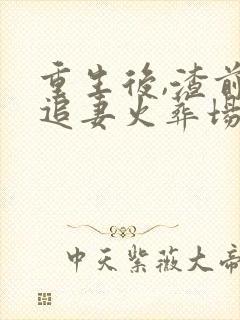 重生後,渣前
追妻火葬場
中天紫薇大帝